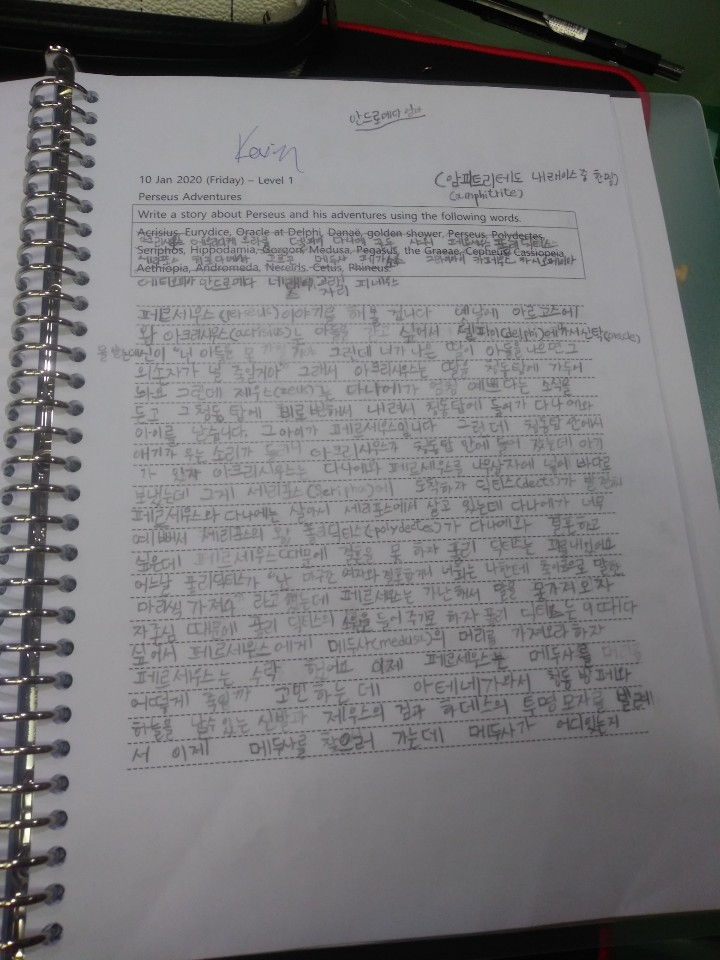 안드로메다 엄마
Kevin
10 Jan 2020 (Friday) – Level 1
(암피트리테도 내레이스중 한명)
(amphitrite)
Perseus Adventures
Write a story about Perseus and his adventures using the following words.
Acrisius, Eurydice, Oracle at Delphi, Danae, golden shower, Perseus, Polydectes,
Seriphos, Hippodamia, Gorgon, Medusa, Pegasus, the Graeae, Cepheus, Cassiopeia,
Aethiopia, Andromeda, Nereids, Cetus, Rhineus
안드로메다
자리
페르세우스 (perseus)이야기를 해볼 겁니다 옛날에 아르고스에
왕 아크리시우스(acrisius)는 아들을 갖고 싶어서 델파이(delphi)에가서신탁(oracle)
"넌 아들을 못 그런데 너가 나은 딸이 아들을 나으면 그
외손자가 널 죽일꺼야" 그래서 아크리시우스는 딸을 청동탑에 가두어
놔요 그런데 제우스(zeus)는 다나에가 엄청 예쁘다는 소식을
듣고 그 청동 탑에 비로 변해서 내려서 청동탑에 들어가 다나에와
아이를 낳습니다. 그 아이가 페르세우스입니다 그러던데 청동탑 안에서
애기가 우는 소리가 들려서 아크리시우스가 청동탑 안에 들어 갔는데 아기
가 있자 아크리시우스는 다나에와 페르세우스를 나무상자에 넣어 바다로
보냈는데 그게 세리포스(Seripho)에 도착하자 딕티스(dects)가 발견해
페르세우스와 다나에는 살아서 세리포스에서 살고 있는데 다나에가 너무
예뻐서 세리포스의 왕 폴리딕티스(polydectes)가 다나에와 결혼하고
싶은데 페르세우스때문에 결혼을 못 하자 폴리 딕티스는
어느날 폴리딕티스가 "나 다른 여자와 결혼할꺼니 너희는 나한테 말한
마리씩 가져와" 라고 했는데 페르세우스는 가난해서 말을 못가져 오자
자존심 때문에 폴리 딕티스의 소원을 들어 주기로 하자 폴리 딕티스는
싶어서 페르세우스에게 메두사(medusa)의 머리를 가져오라 하자
페르세우스는 수락 했어요 이제 페르세우스는 메두사를
어떻게 죽일까 고민 하는 데 아테네가와서 청동 방패와
하늘을 날수있는 신발과 제우스의 검과 하데스의 투명 모자를 빌려
서 이제 메두사를 찾으러 가는데 메두사가 어디있는지